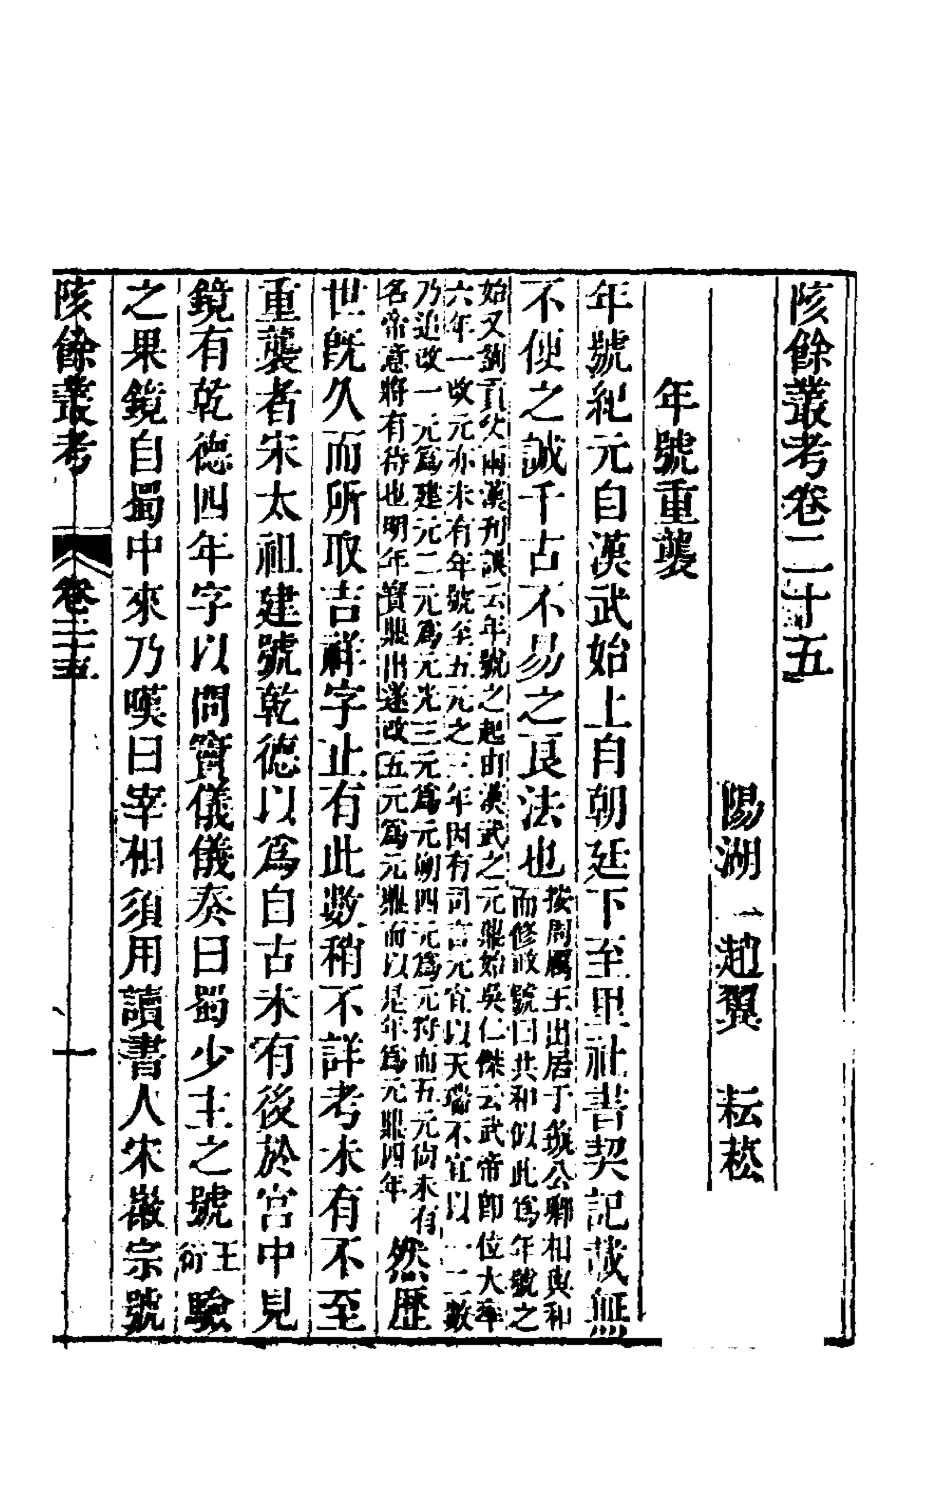 陔餘叢考卷二十五
陽湖 趙翼 耘菘
年號重襲
年號紀元自漢武始上自朝廷下至里社書契記載無
不便之誠千古不易之良法也
按周厲王出居于彘公卿相與和
而修政號曰共和似此爲年號之
始又劉貢父兩漢刊誤云年號之起由漢武之元鼎始吳仁傑云武帝卽位大率
六年一改元亦未有年號至五元之三年因有司言元宜以天瑞不宜以一二數
乃追改一元爲建元二元爲元光三元爲元朔四元爲元狩而五元尚未有
名帝意將有待也明年寶鼎出遂改五元爲元鼎而以是年爲元鼎四年
然歷
世旣久而所取吉祥字止有此數稍不詳考未有不至
重襲者宋太祖建號乾德以爲自古未有後於宮中見
鏡有乾德四年字以問竇儀儀奏曰蜀少主之號王衍驗
之果鏡自蜀中來乃嘆曰宰相須用讀書人宋徽宗號
陔餘叢考 卷二十五 一